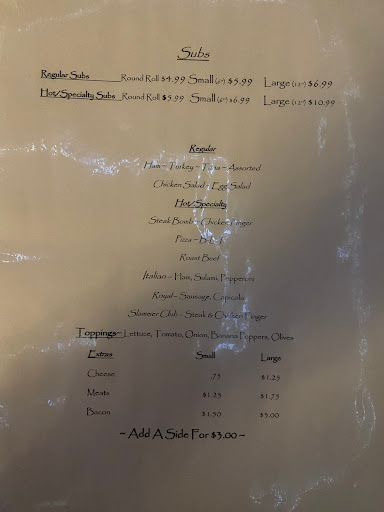 Subs
Regular Subs Round Roll $4.99 Small (6") $5.99 Large (12") $6.99
Hot/Specialty Subs Round Roll $5.99 Small (6") $6.99 Large (12") $10.99
Regular
Ham ~ Turkey ~ Tuna ~ Assorted
Chicken Salad ~ Egg Salad
Hot/Specialty
Steak Bomb ~ Chicken Finger
Pizza ~ B L T
Roast Beef
Italian ~ Ham, Salami, Pepperoni
Royal ~ Sausage, Capicola
Slammer Club ~ Steak & Chicken Finger
Toppings~ Lettuce, Tomato, Onion, Banana Peppers, Olives
Extras Small Large
Cheese .75 $1.25
Meats $1.25 $1.75
Bacon $1.50 $3.00
~ Add A Side For $3.00 ~